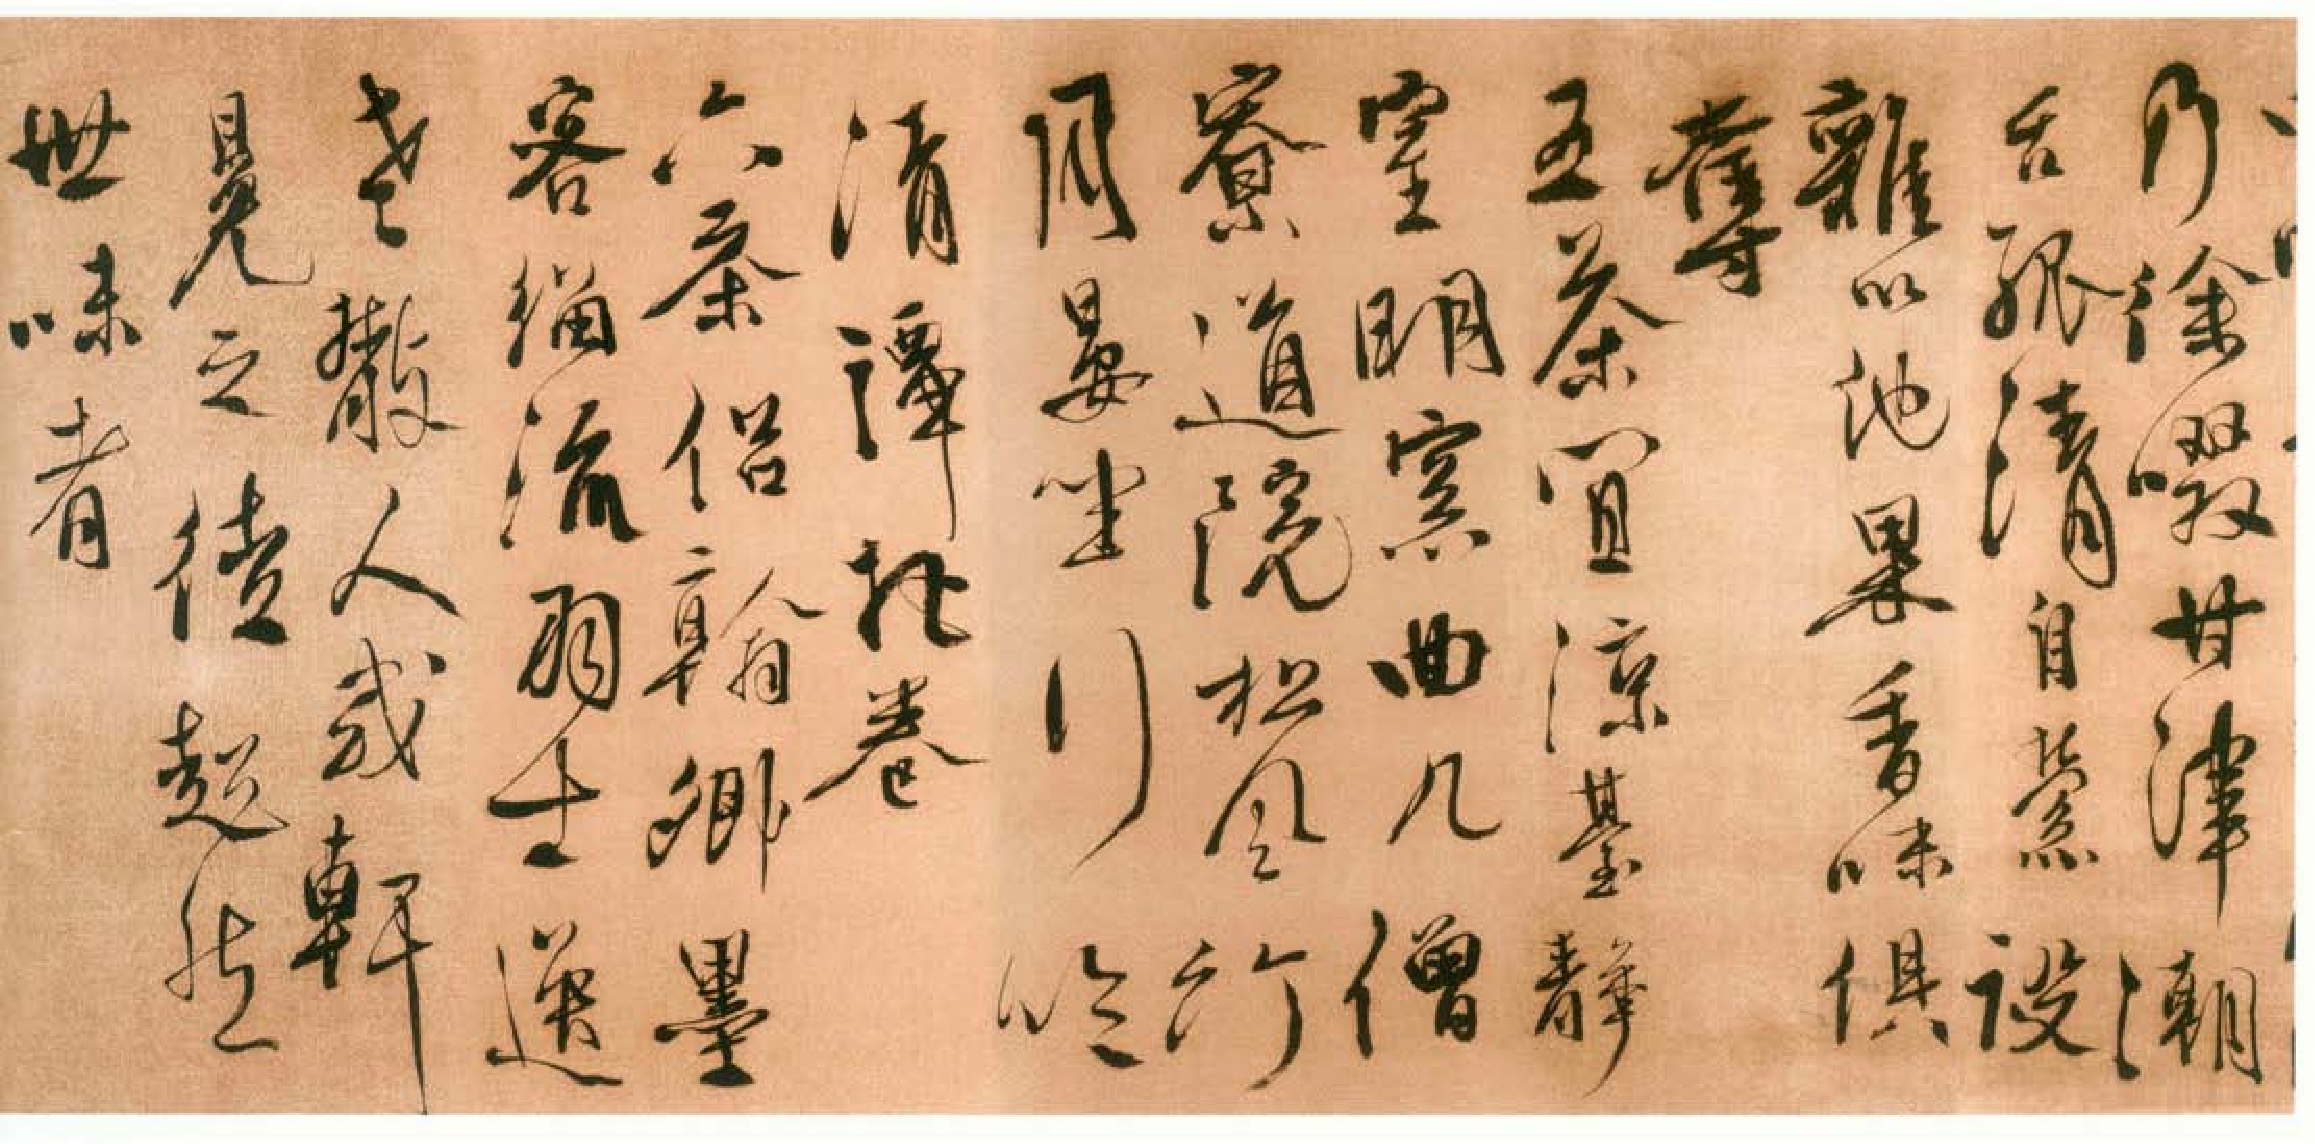 乃徐啜甘津潮
舌孤清自縈設
雜以他果香味俱
奪
五茶宜涼臺靜
室明窗曲几僧
寮道院松風竹
月晏坐行吟
清譚把卷
六茶侶翰卿墨
客緇流羽士逸
老散人或軒
冕之徒超然
世味者